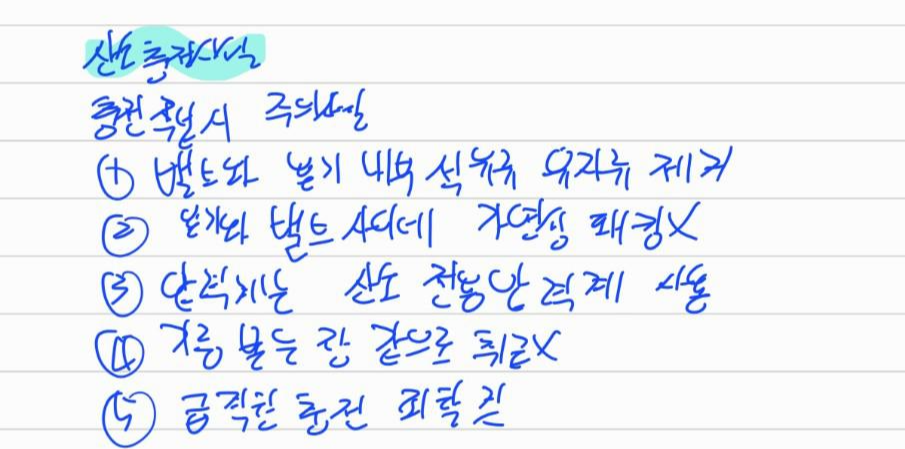 산소충전사업
충전작업시 주의사항
① 밸브와 용기 내부 석유류 유지류 제거
② 용기와 밸브 사이에 가연성 패킹X
③ 압력계는 산소 전용압력계 사용
④ 기름 묻은 장갑으로 취급X
⑤ 급격한 충전 피할 것